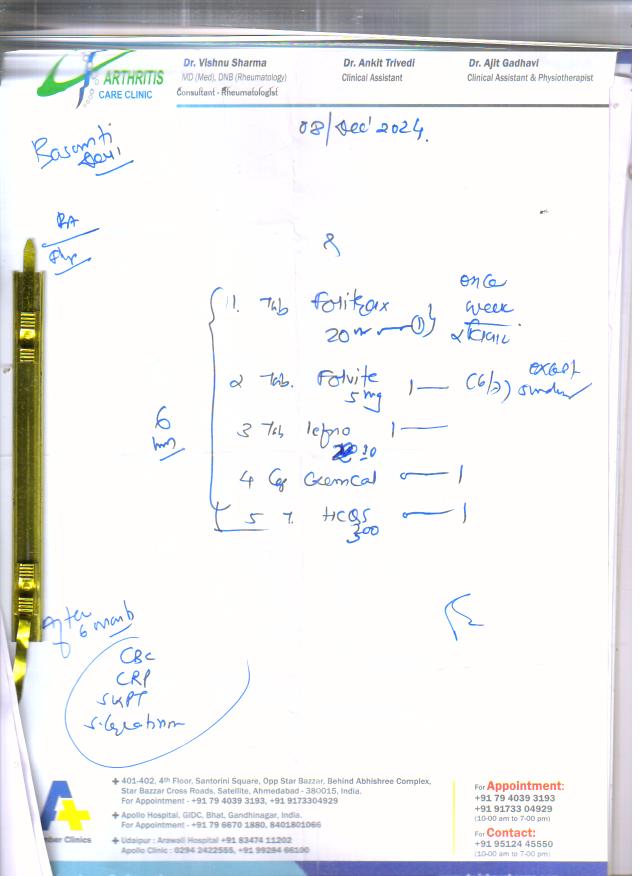 ARTHRITIS
CARE CLINIC
Dr. Vishnu Sharma
MD (Med), DNB (Rheumatology)
Consultant - Rheumatologist
Dr. Ankit Trivedi
Clinical Assistant
Dr. Ajit Gadhavi
Clinical Assistant & Physiotherapist
08/Dec' 2024.
Basanti
Devi
RA
6
1. Tab Folitrax
20 1
once
week
2 Tab. Folvite
5 mg
1 (6/7) except
sunday
3 Tab lefno 1
10
4 Cap Gemcal 1
5 T. HCQS 1
300
After
6 month
CBC
CRP
SGPT
S. Creatinine
401-402, 4th Floor, Santorini Square, Opp Star Bazzar, Behind Abhishree Complex,
Star Bazzar Cross Roads, Satellite, Ahmedabad - 380015, India.
For Appointment - +91 79 4039 3193, +91 9173304929
Apollo Hospital, GIDC, Bhat, Gandhinagar, India.
For Appointment - +91 79 6670 1880, 8401801066
Udaipur : Arawali Hospital +91 83474 11202
Apollo Clinic : 0294 2422555, +91 99284 66100
mber Clinics
For Appointment:
+91 79 4039 3193
+91 91733 04929
(10-00 am to 7-00 pm)
For Contact:
+91 95124 45550
(10-00 am to 7-00 pm)